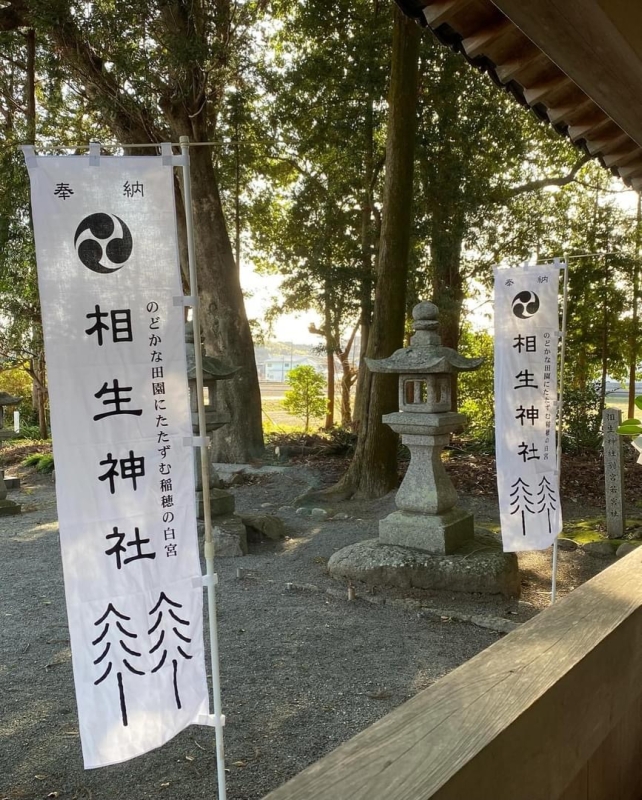 奉納
相生神社
のどかな田園にたたずむ稲穂の白宮
奉納
相生神社
のどかな田園にたたずむ稲穂の白宮